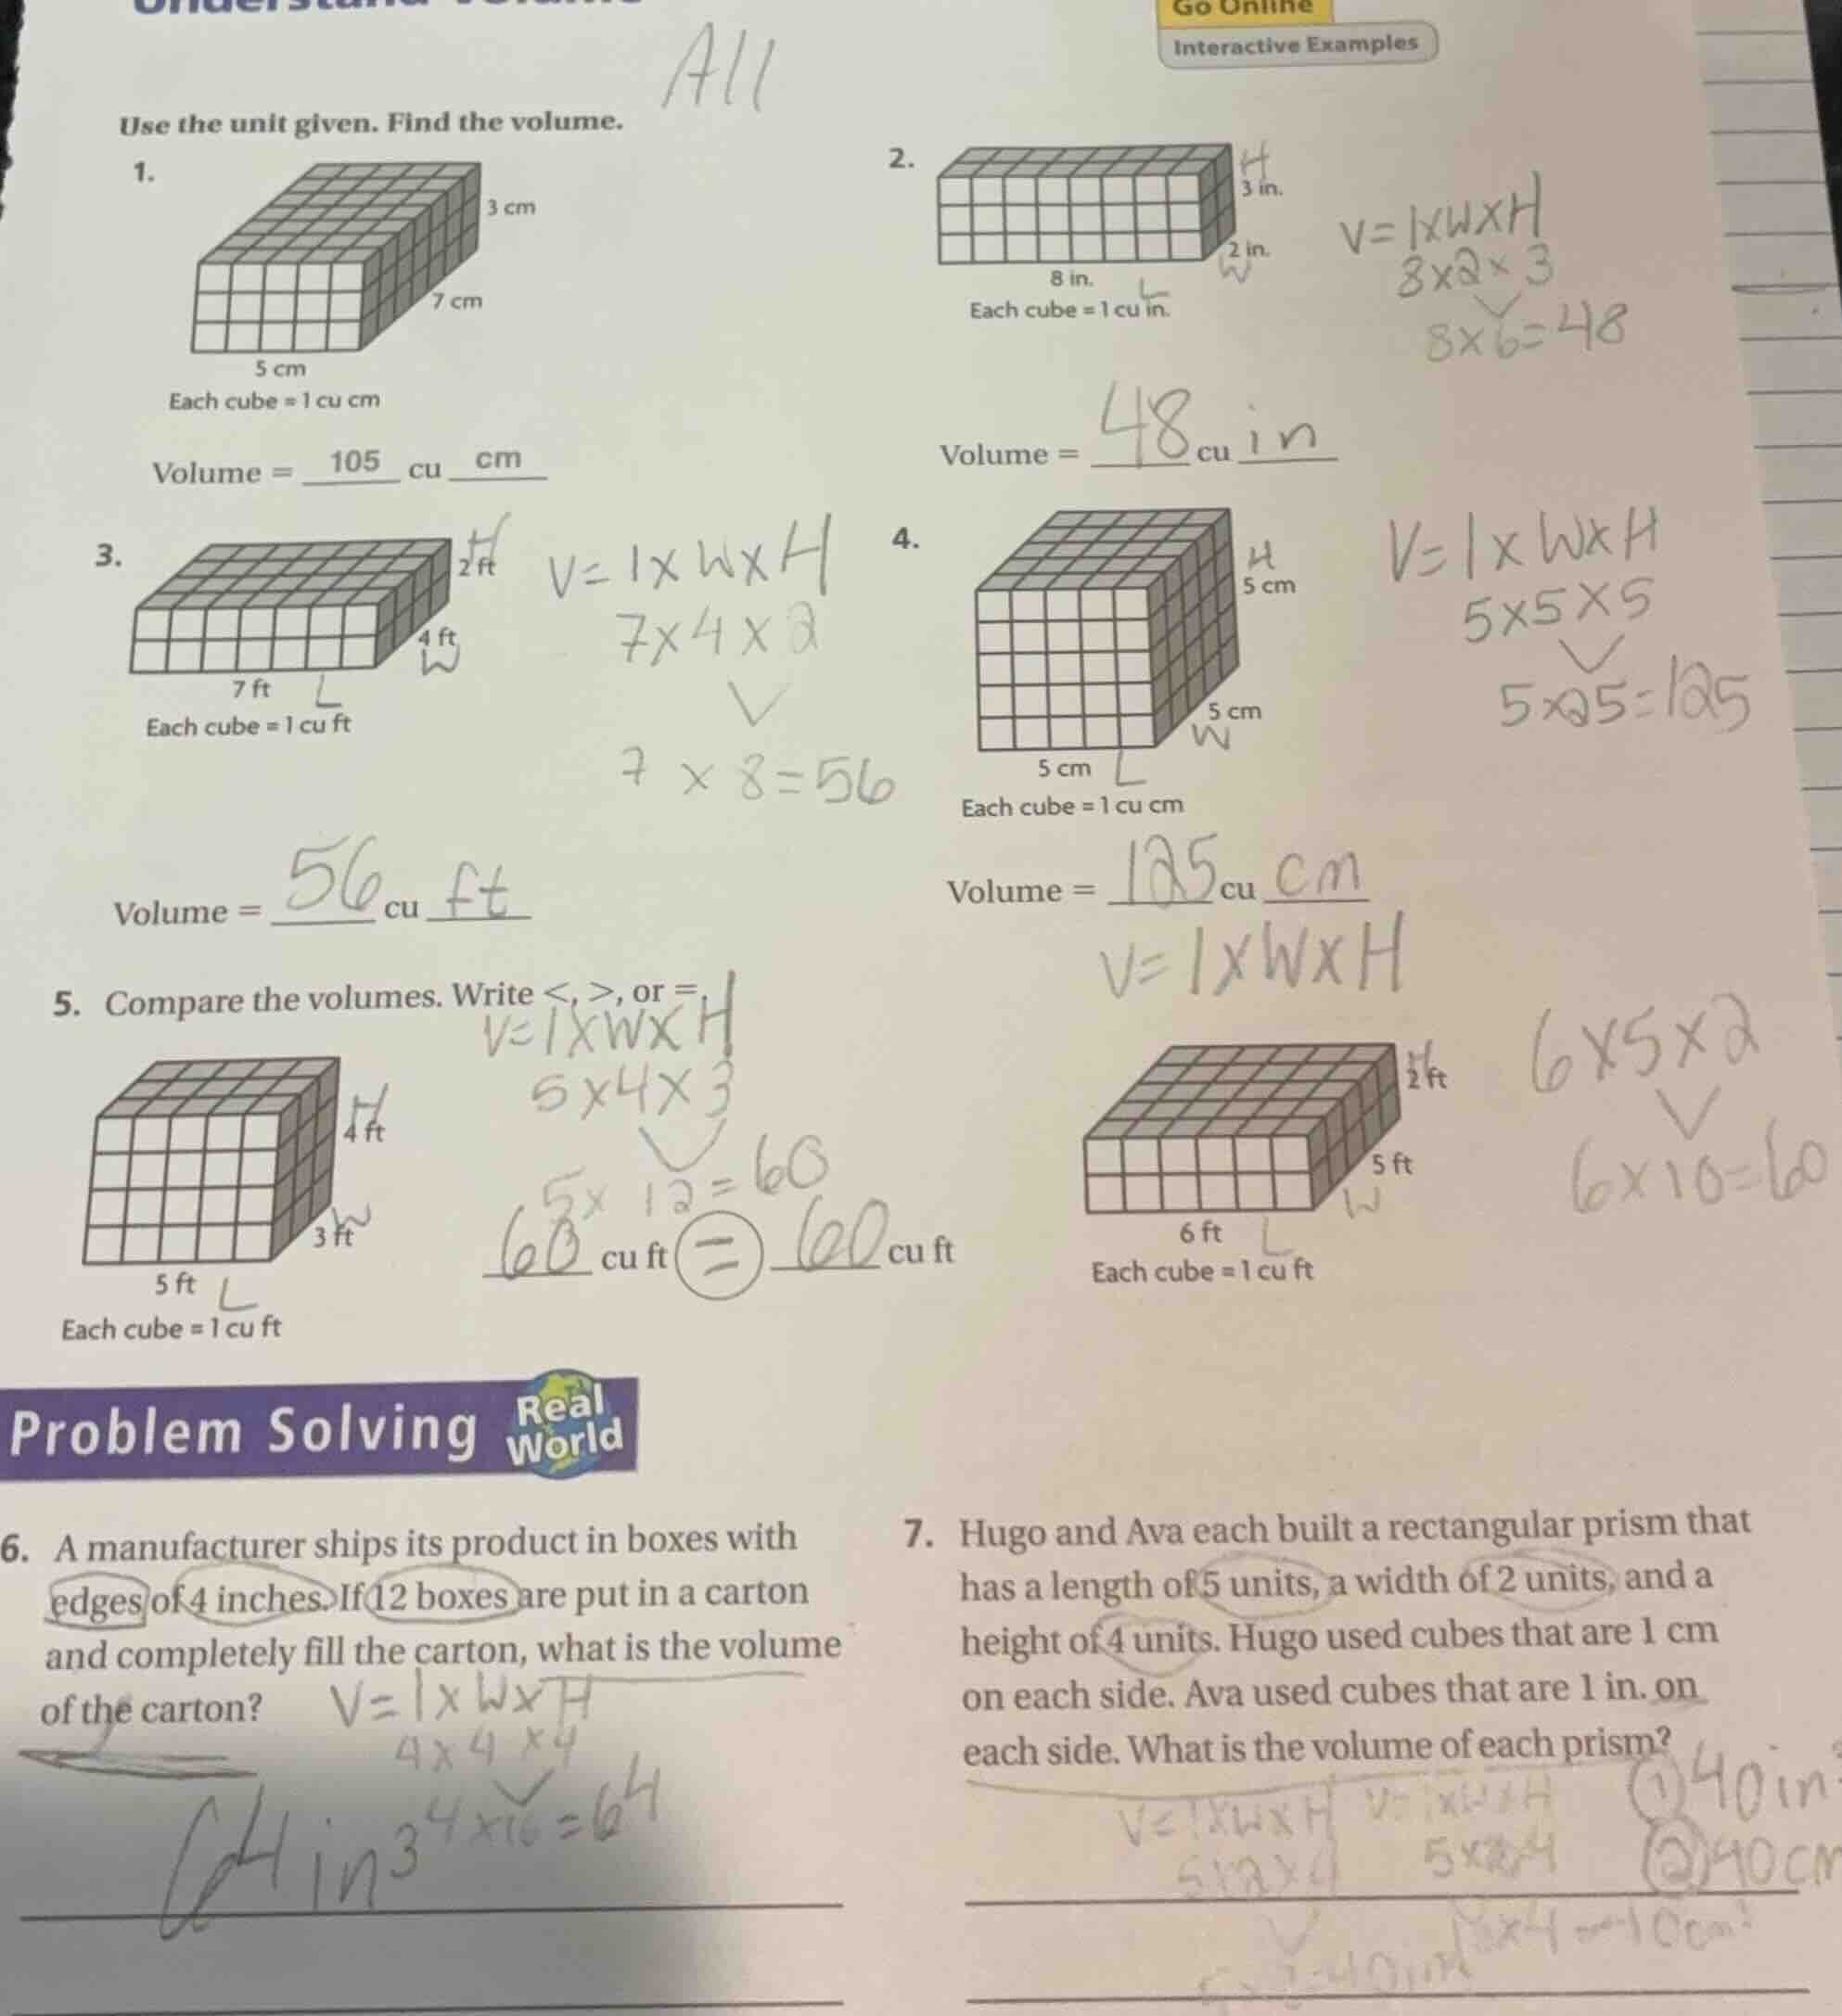 Understand Volume
Go Online
Interactive Examples
All
Use the unit given. Find the volume.
1.
3 cm
7 cm
5 cm
Each cube = 1 cu cm
Volume = 105 cu cm
2.
H
3 in.
2 in.
W
8 in.
L
Each cube = 1 cu in.
V=lxWxH
8x2x3
8x6=48
Volume = 48 cu in
3.
H
2 ft
4 ft
W
7 ft
L
Each cube = 1 cu ft
V=lxWxH
7x4x2
7x8=56
Volume = 56 cu ft
4.
H
5 cm
5 cm
W
5 cm
L
Each cube = 1 cu cm
V=lxWxH
5x5x5
5x25=125
Volume = 125 cu cm
5. Compare the volumes. Write <, >, or =.
V=lxWxH
5x4x3
5x12=60
H
4 ft
3 ft
W
5 ft
L
Each cube = 1 cu ft
60 cu ft = 60 cu ft
V=lxWxH
H
2 ft
5 ft
W
6 ft
L
Each cube = 1 cu ft
6x5x2
6x10=60
Problem Solving Real World
6. A manufacturer ships its product in boxes with
edges of 4 inches. If 12 boxes are put in a carton
and completely fill the carton, what is the volume
of the carton?
V=lxWxH
4x4x4
4x16=64
64in3
7. Hugo and Ava each built a rectangular prism that
has a length of 5 units, a width of 2 units, and a
height of 4 units. Hugo used cubes that are 1 cm
on each side. Ava used cubes that are 1 in. on
each side. What is the volume of each prism?
V=lxWxH V=lxWxH
5x2x4 5x2x4
① 40in
② 40cm